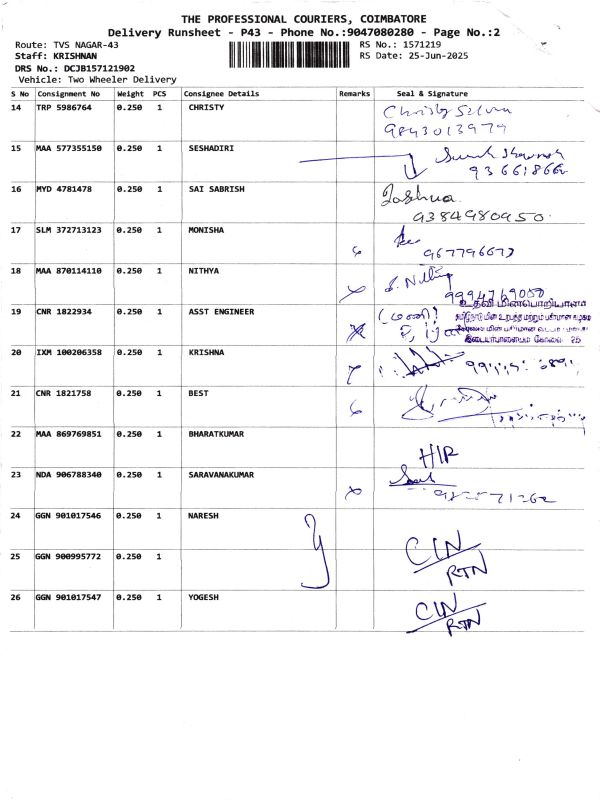 THE PROFESSIONAL COURIERS, COIMBATORE
Delivery Runsheet - P43 - Phone No.:9047080280 - Page No.:2
Route: TVS NAGAR-43 RS No.: 1571219
Staff: KRISHNAN RS Date: 25-Jun-2025
DRS No.: DCJB157121902
Vehicle: Two Wheeler Delivery
S No Consignment No Weight PCS Consignee Details Remarks Seal & Signature
14 TRP 5986764 0.250 1 CHRISTY Christy
9843013979
15 MAA 577355150 0.250 1 SESHADIRI
16 MYD 4781478 0.250 1 SAI SABRISH Joshua
9384980950
17 SLM 372713123 0.250 1 MONISHA
18 MAA 870114110 0.250 1 NITHYA
9994769000
19 CNR 1822934 0.250 1 ASST ENGINEER உதவி மின்பொறியாளர்
20 IXM 100206358 0.250 1 KRISHNA
21 CNR 1821758 0.250 1 BEST
22 MAA 869769851 0.250 1 BHARATKUMAR H/R
23 NDA 906788340 0.250 1 SARAVANAKUMAR
24 GGN 901017546 0.250 1 NARESH C/N
RTN
25 GGN 900995772 0.250 1
26 GGN 901017547 0.250 1 YOGESH C/N
RTN